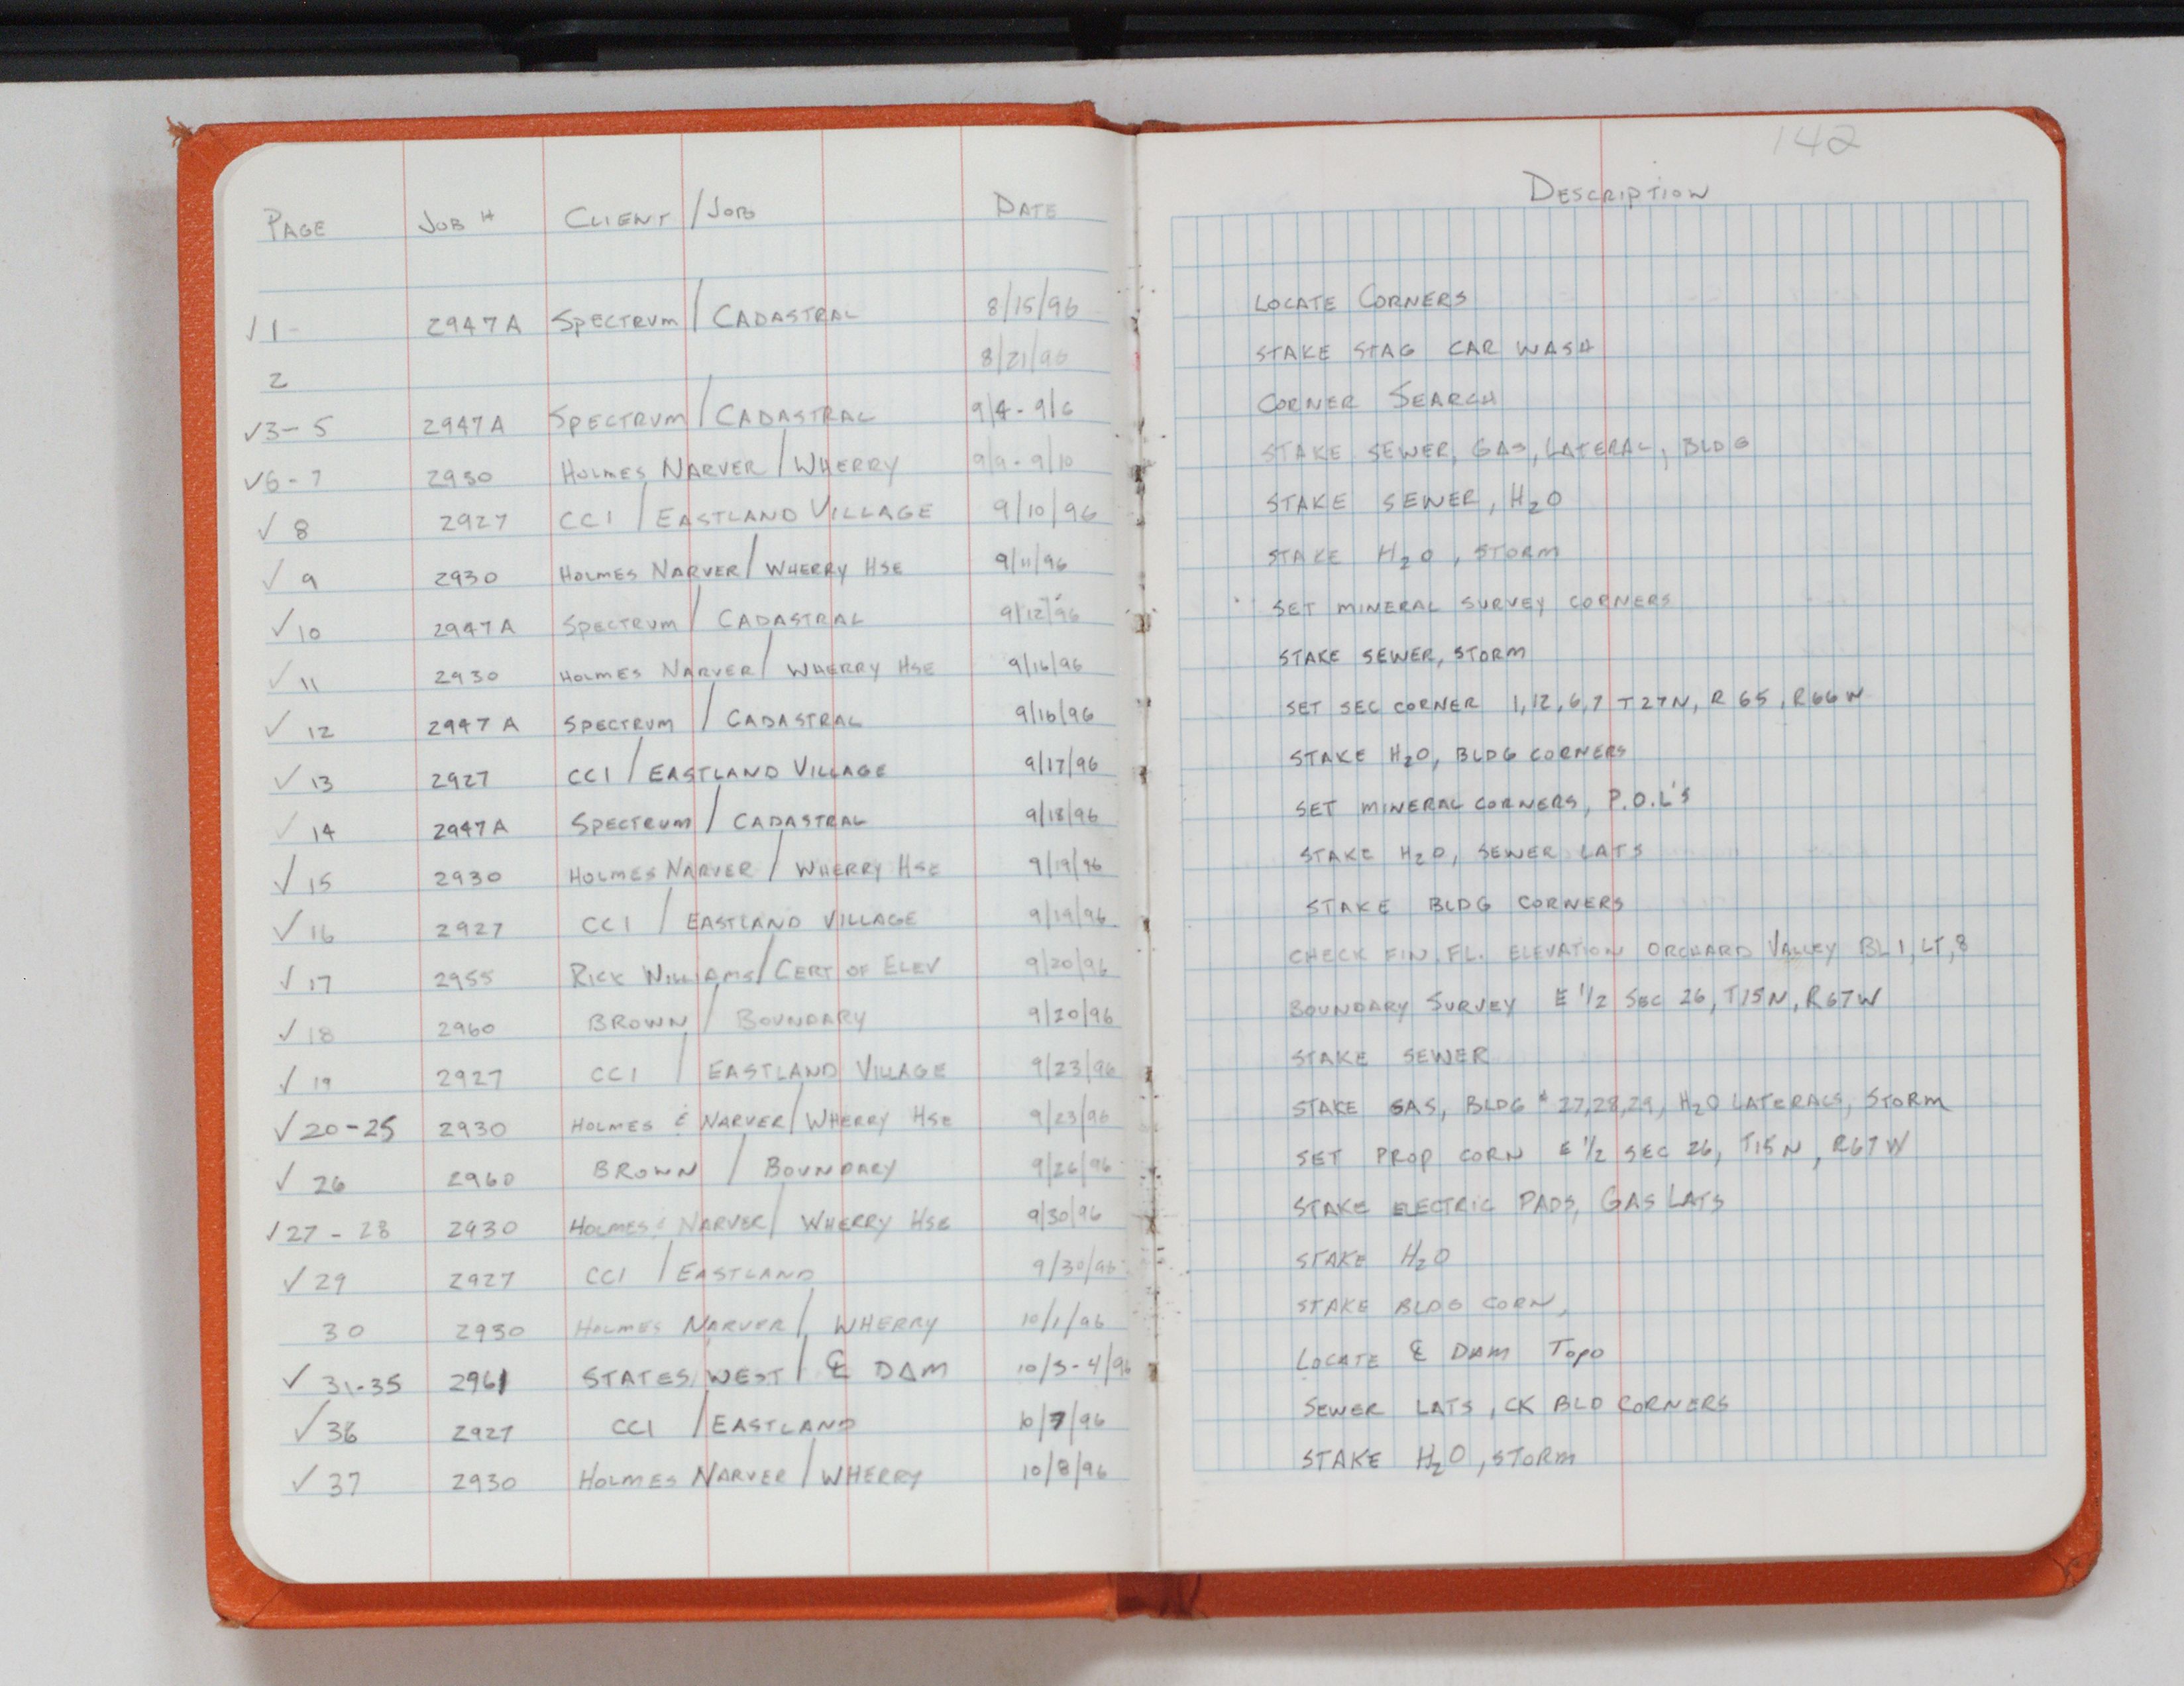 142
PAGE JOB # CLIENT / JOB DATE DESCRIPTION
✓ 1 - 2947A SPECTRUM / CADASTRAL 8/15/96 LOCATE CORNERS
2 8/21/96 STAKE STAG CAR WASH
✓ 3-5 2947A SPECTRUM / CADASTRAL 9/4 - 9/6 CORNER SEARCH
✓ 6-7 2930 HOLMES NARVER / WHERRY 9/9 - 9/10 STAKE SEWER, GAS, LATERAL, BLDG
✓ 8 2927 CCI / EASTLAND VILLAGE 9/10/96 STAKE SEWER, H2O
✓ 9 2930 HOLMES NARVER / WHERRY HSE 9/11/96 STAKE H2O, STORM
✓ 10 2947A SPECTRUM / CADASTRAL 9/12/96 SET MINERAL SURVEY CORNERS
✓ 11 2930 HOLMES NARVER / WHERRY HSE 9/16/96 STAKE SEWER, STORM
✓ 12 2947A SPECTRUM / CADASTRAL 9/16/96 SET SEC CORNER 1,12,6,7 T27N, R65, R66W
✓ 13 2927 CCI / EASTLAND VILLAGE 9/17/96 STAKE H2O, BLDG CORNERS
✓ 14 2947A SPECTRUM / CADASTRAL 9/18/96 SET MINERAL CORNERS, P.O.L'S
✓ 15 2930 HOLMES NARVER / WHERRY HSE 9/19/96 STAKE H2O, SEWER LATS
✓ 16 2927 CCI / EASTLAND VILLAGE 9/19/96 STAKE BLDG CORNERS
✓ 17 2955 RICK WILLIAMS / CERT OF ELEV 9/20/96 CHECK FIN. FL. ELEVATION ORCHARD VALLEY BL 1, LT, 8
✓ 18 2960 BROWN / BOUNDARY 9/20/96 BOUNDARY SURVEY E 1/2 SEC 26, T15N, R67W
✓ 19 2927 CCI / EASTLAND VILLAGE 9/23/96 STAKE SEWER
✓ 20-25 2930 HOLMES & NARVER / WHERRY HSE 9/23/96 STAKE GAS, BLDG # 27,28,29, H2O LATERALS, STORM
✓ 26 2960 BROWN / BOUNDARY 9/26/96 SET PROP CORN E 1/2 SEC 26, T15N, R67W
✓ 27 - 28 2930 HOLMES & NARVER / WHERRY HSE 9/30/96 STAKE ELECTRIC PADS, GAS LATS
✓ 29 2927 CCI / EASTLAND 9/30/96 STAKE H2O
30 2930 HOLMES NARVER / WHERRY 10/1/96 STAKE BLDG CORN,
✓ 31-35 2961 STATES WEST / ℄ DAM 10/3-4/96 LOCATE ℄ DAM TOPO
✓ 36 2927 CCI / EASTLAND 10/7/96 SEWER LATS, CK BLD CORNERS
✓ 37 2930 HOLMES NARVER / WHERRY 10/8/96 STAKE H2O, STORM